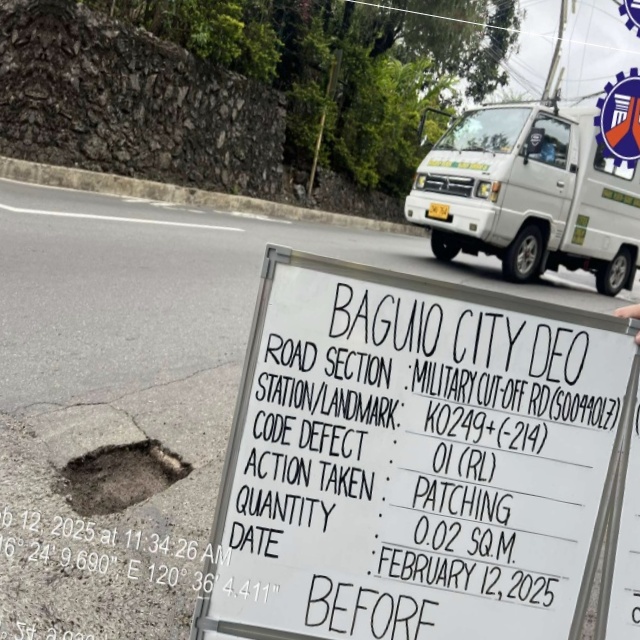 BAGUIO CITY DEO
ROAD SECTION : MILITARY CUT-OFF RD (S00441LZ)
STATION/LANDMARK : K0249+(-214)
CODE DEFECT : 01 (RL)
ACTION TAKEN : PATCHING
QUANTITY : 0.02 SQ.M.
DATE : FEBRUARY 12, 2025
BEFORE
12, 2025 at 11:34:26 AM
16° 24' 9.690" E 120° 36' 4.411"